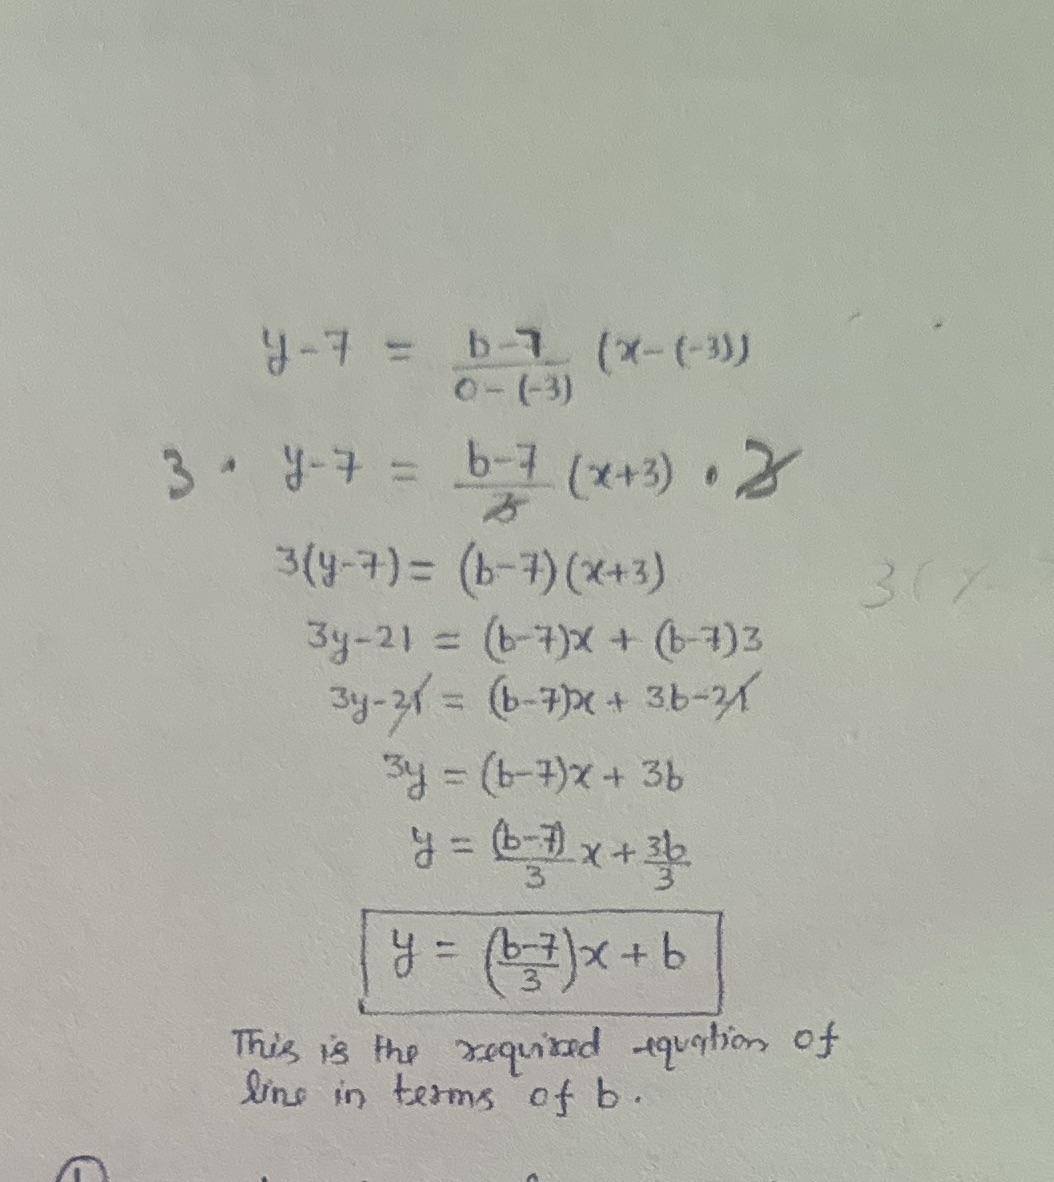 y-7 = b-7/0-(-3) (x-(-3))
3 · y-7 = b-7/3 (x+3) · 3
3(y-7) = (b-7)(x+3)
3y-21 = (b-7)x + (b-7)3
3y-21 = (b-7)x + 3b-21
3y = (b-7)x + 3b
y = (b-7)/3 x + 3b/3
y = (b-7/3)x + b
This is the required equation of
line in terms of b.